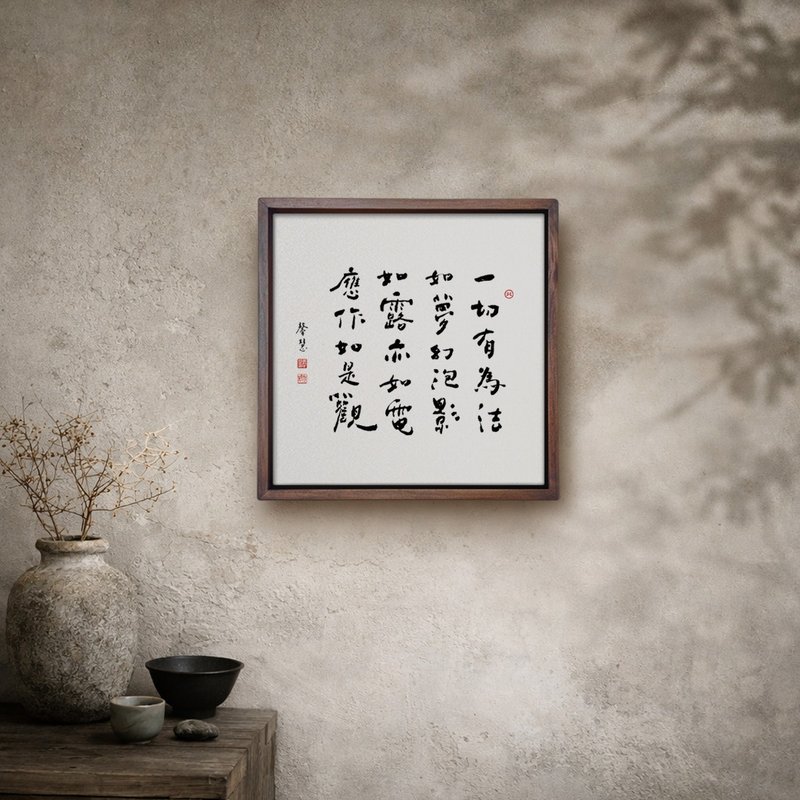 一切有為法
如夢幻泡影
如露亦如電
應作如是觀
馨慧